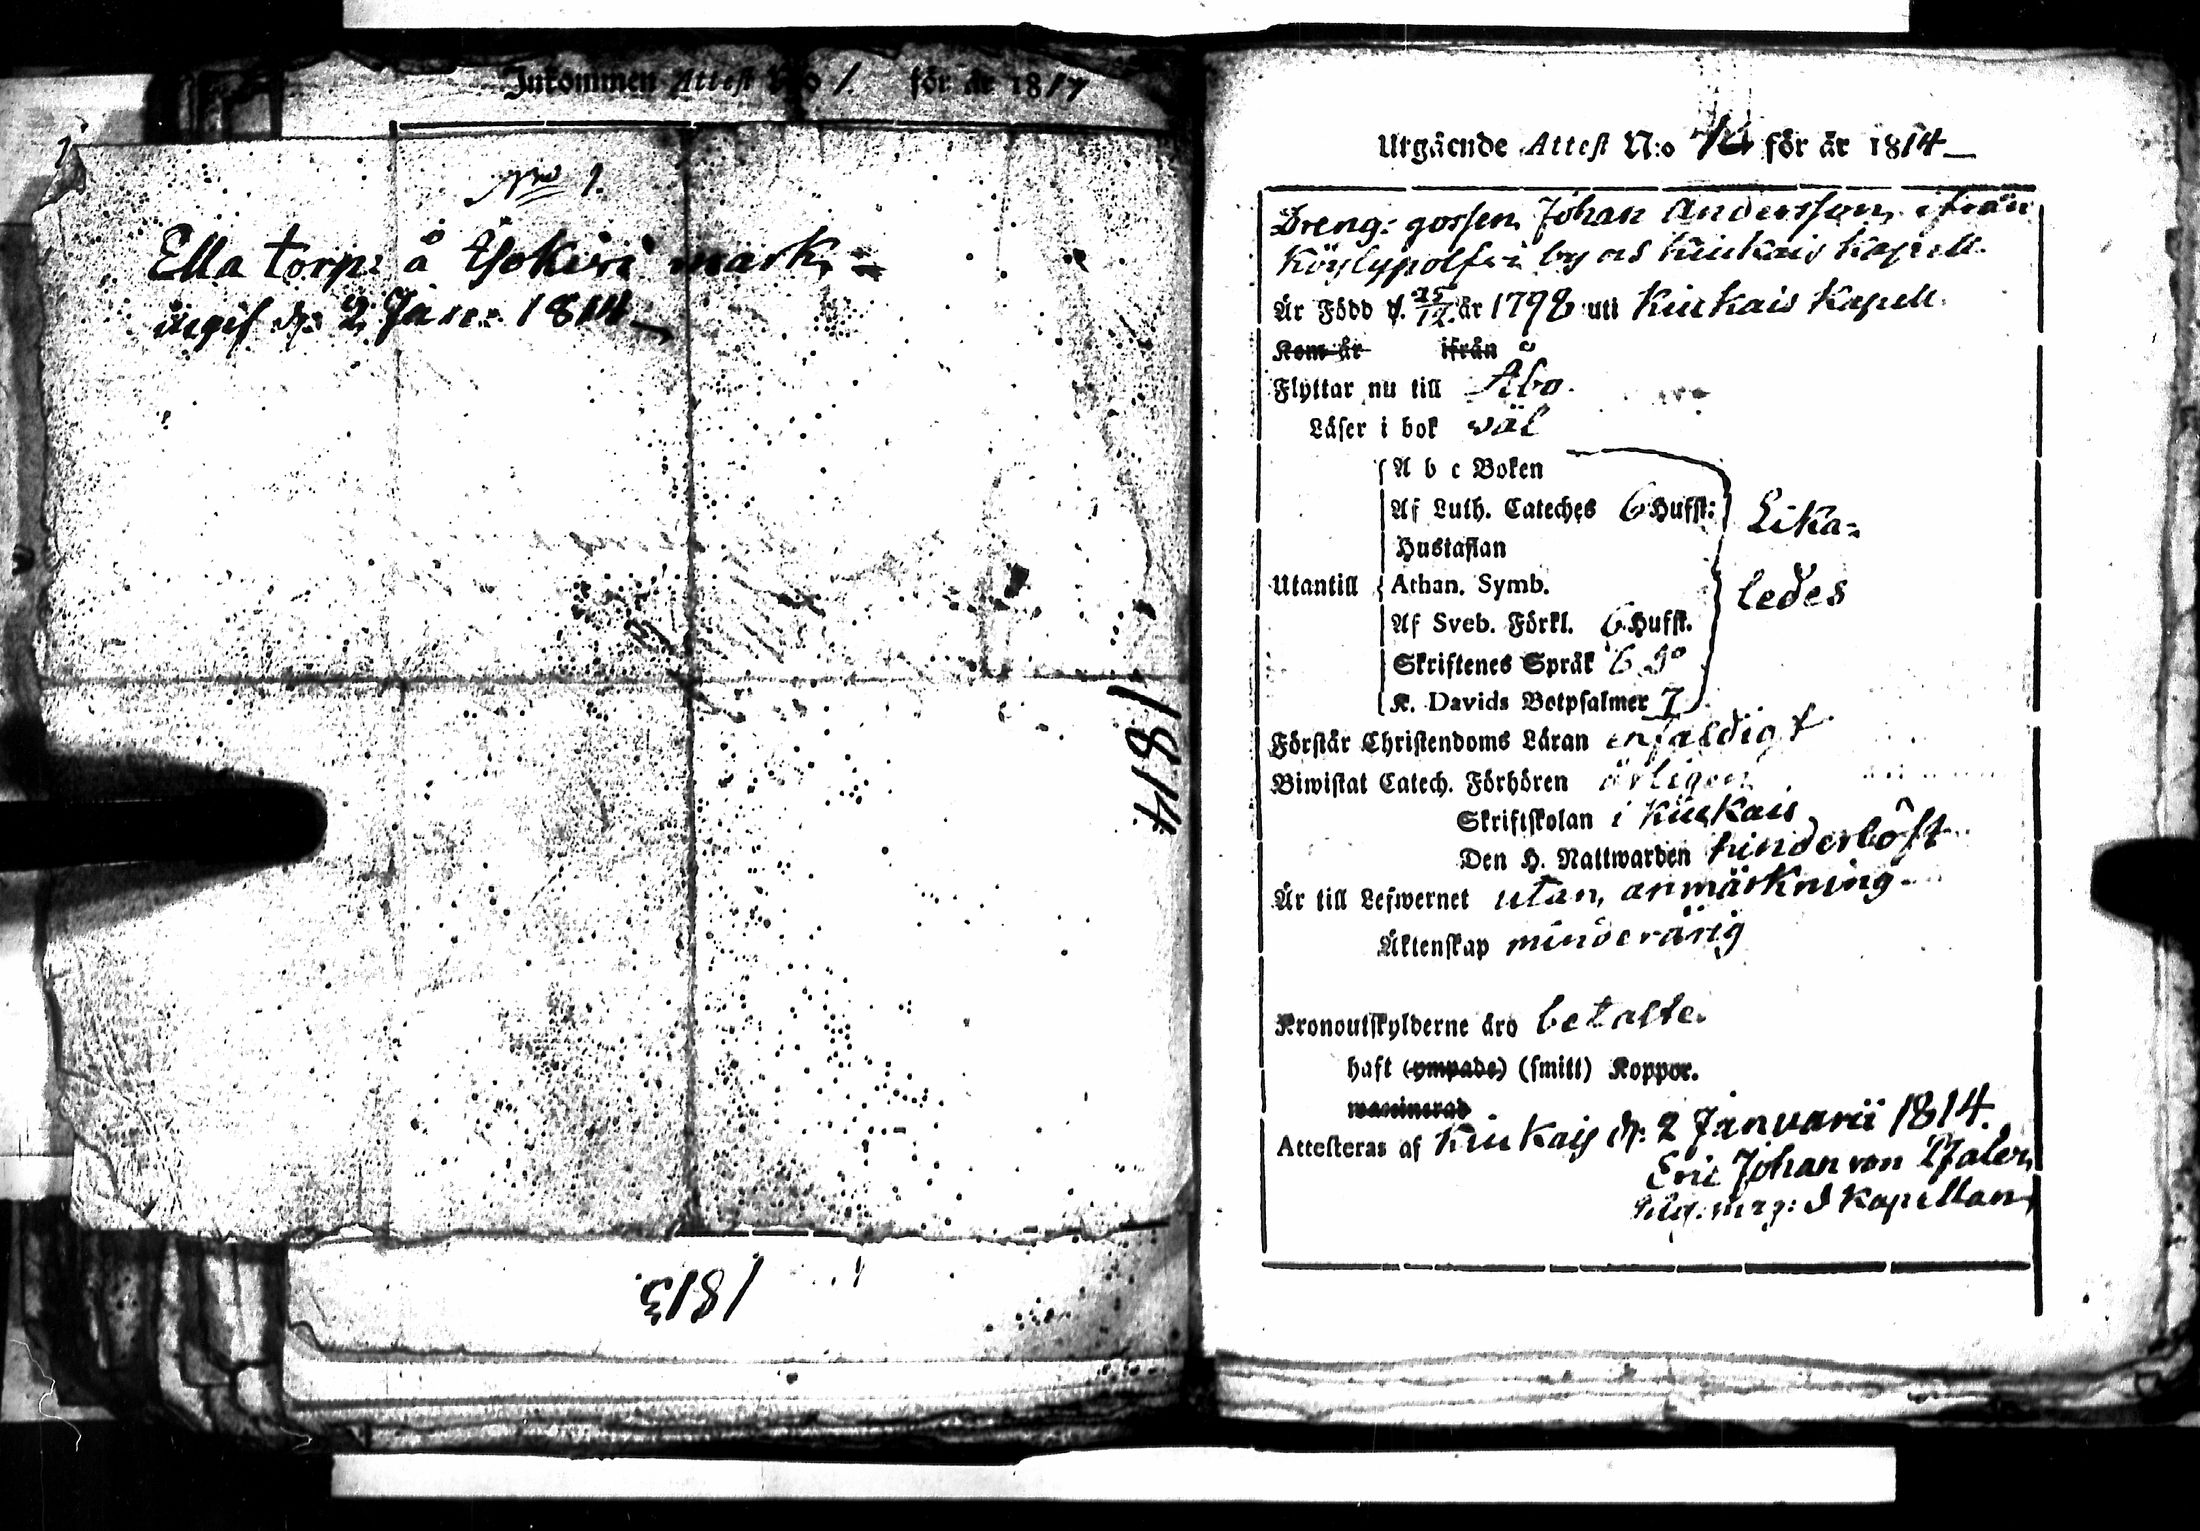 Inkommen Attest N:o 1. för år 1814
No 1.
Ella torp: å Isokiri mark
ingif d: 2 Jan: 1814
1814
1813.
Utgående Attest N:o för år 1814
Dreng-gossen Johan Andersson, ifrån
Köylypolfvi by as Kiukais Kapell.
Är Född d. 25/12 år 1798 uti Kiukais Kapell.
Kom år ifrån
Flyttar nu till Åbo.
Läser i bok wäl
A b c Boken
Af Luth. Cateches 6 Hufst: Lika-
Hustaflan
Utantill Athan. Symb. ledes
Af Sveb. Förkl. 6 Hufst.
Skriftenes Språk 6 do
K. Davids Botpsalmer 7
Förstår Christendoms Läran enfaldigt
Biwistat Catech. Förhören årligen
Skriftskolan i Kiukais
Den H. Nattwarden hinderlöst
Är till Lefwernet utan anmärkning
Äktenskap minderårig
Kronoutskylderne äro betalte.
haft (ympade) (smitt) Koppor.
waccinerad
Attesteras af Kiukais d: 2 Januarii 1814.
Eric Johan von Pfaler,
Kapellan